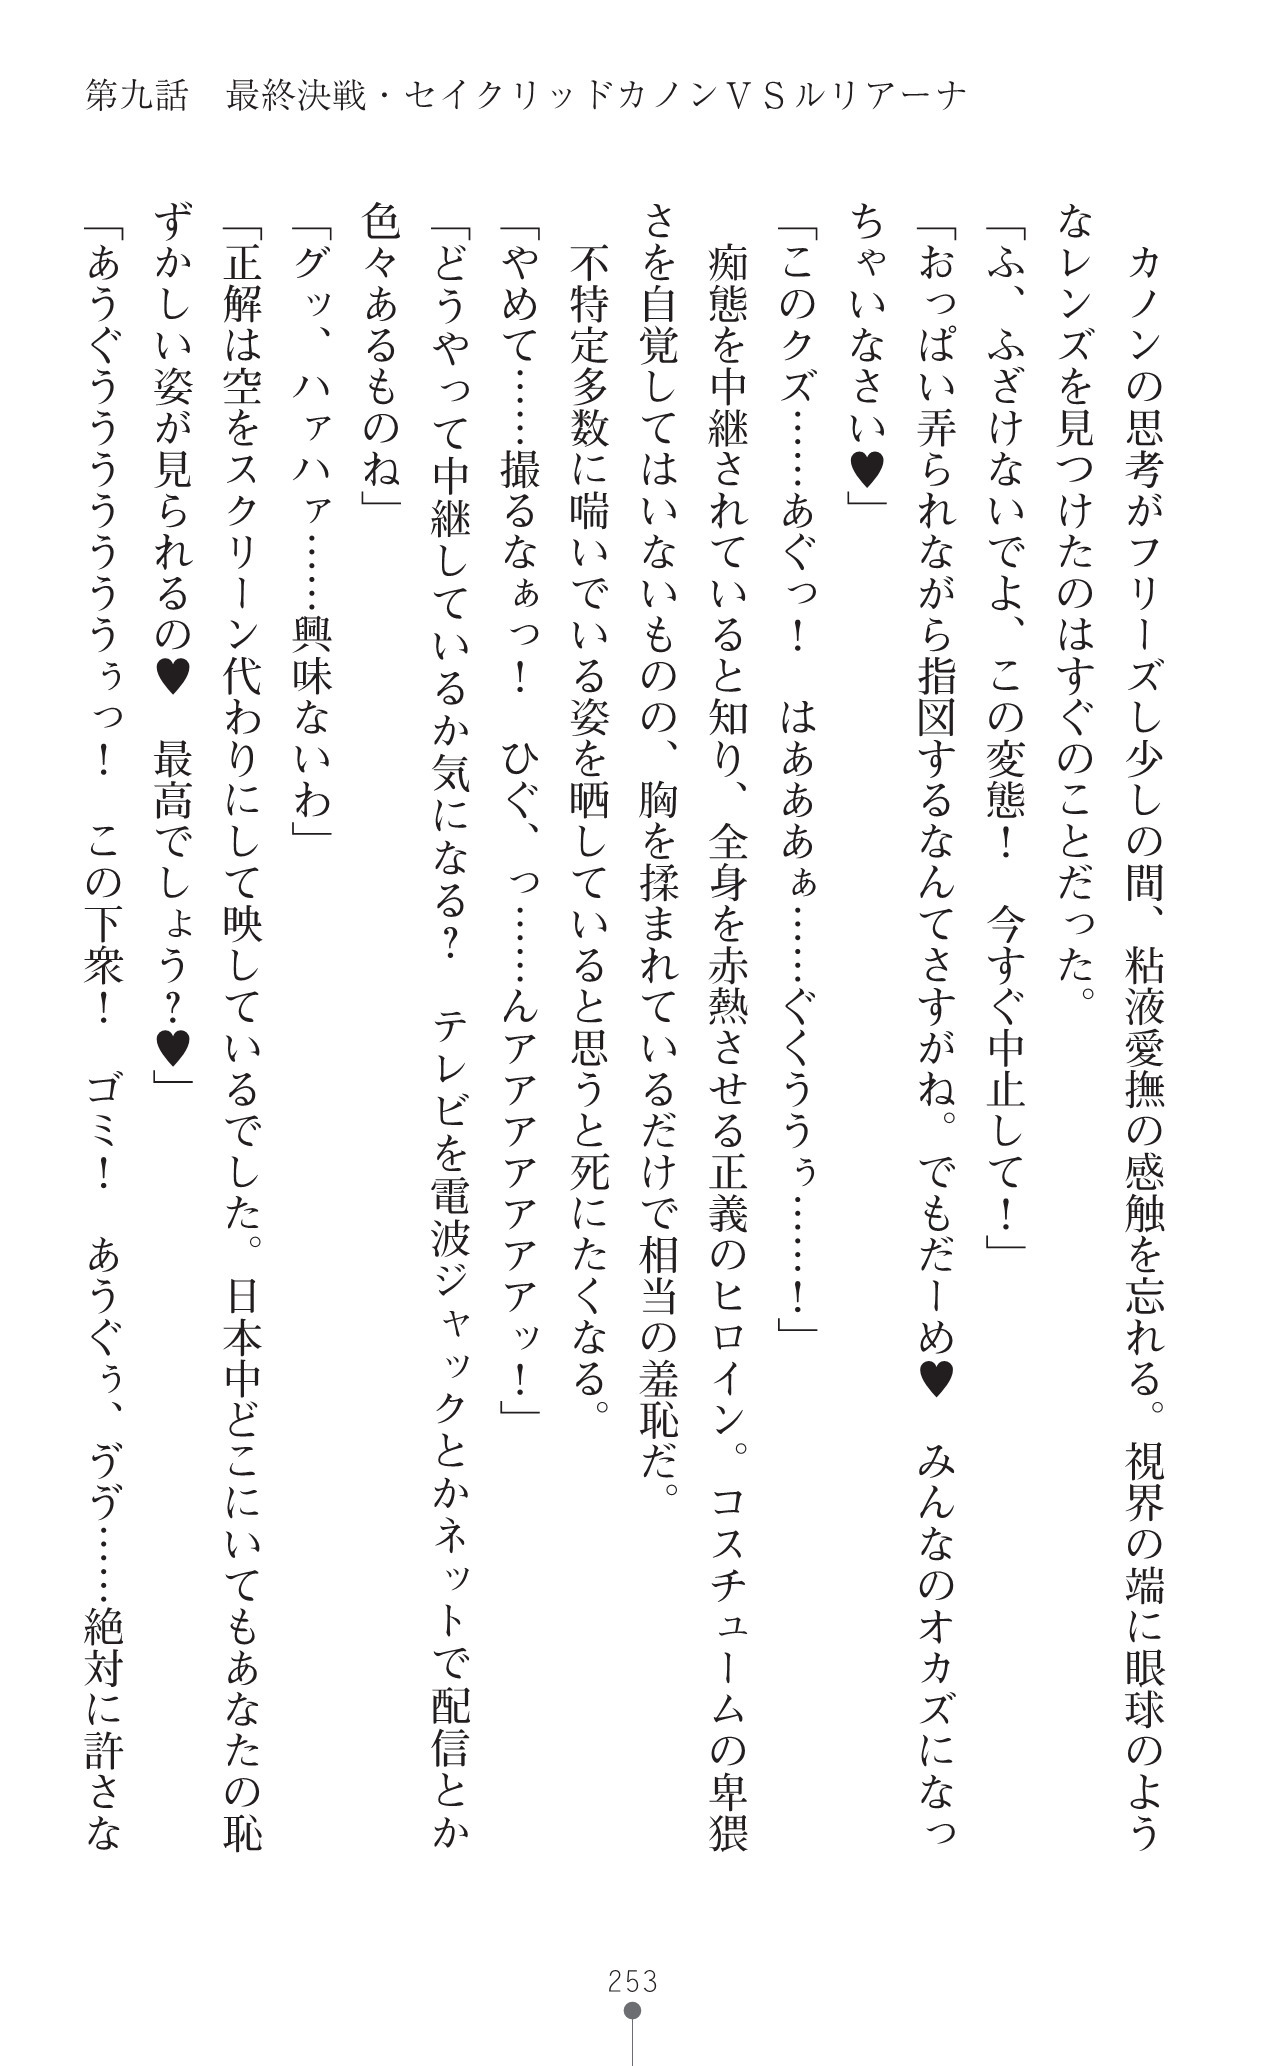 第九話　最終決戦・セイクリッドカノンＶＳルリアーナ
　カノンの思考がフリーズし少しの間、粘液愛撫の感触を忘れる。視界の端に眼球のよう
なレンズを見つけたのはすぐのことだった。
「ふ、ふざけないでよ、この変態！　今すぐ中止して！」
「おっぱい弄られながら指図するなんてさすがね。でもだーめ♥　みんなのオカズになっ
ちゃいなさい♥」
「このクズ……あぐっ！　はあああぁ……ぐくううぅ……！」
　痴態を中継されていると知り、全身を赤熱させる正義のヒロイン。コスチュームの卑猥
さを自覚してはいないものの、胸を揉まれているだけで相当の羞恥だ。
　不特定多数に喘いでいる姿を晒していると思うと死にたくなる。
「やめて……撮るなぁっ！　ひぐ、っ……んアアアアアアアッ！」
「どうやって中継しているか気になる？　テレビを電波ジャックとかネットで配信とか
色々あるものね」
「グッ、ハァハァ……興味ないわ」
「正解は空をスクリーン代わりにして映しているでした。日本中どこにいてもあなたの恥
ずかしい姿が見られるの♥　最高でしょう？♥」
「あうぐううううううううぅっ！　この下衆！　ゴミ！　あうぐぅ、ゔゔ……絶対に許さな
253